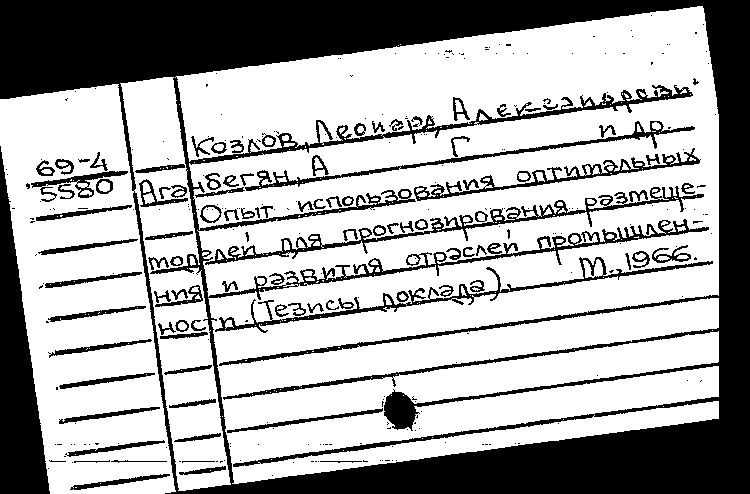 Козлов, Леонард Александрови
69-4
5580
Аганбегян, А Г и др.
Опыт использования оптимальных
моделей для прогнозирования размеще-
ния и развития отраслей промышлен-
ности. (Тезисы доклада). М., 1966.